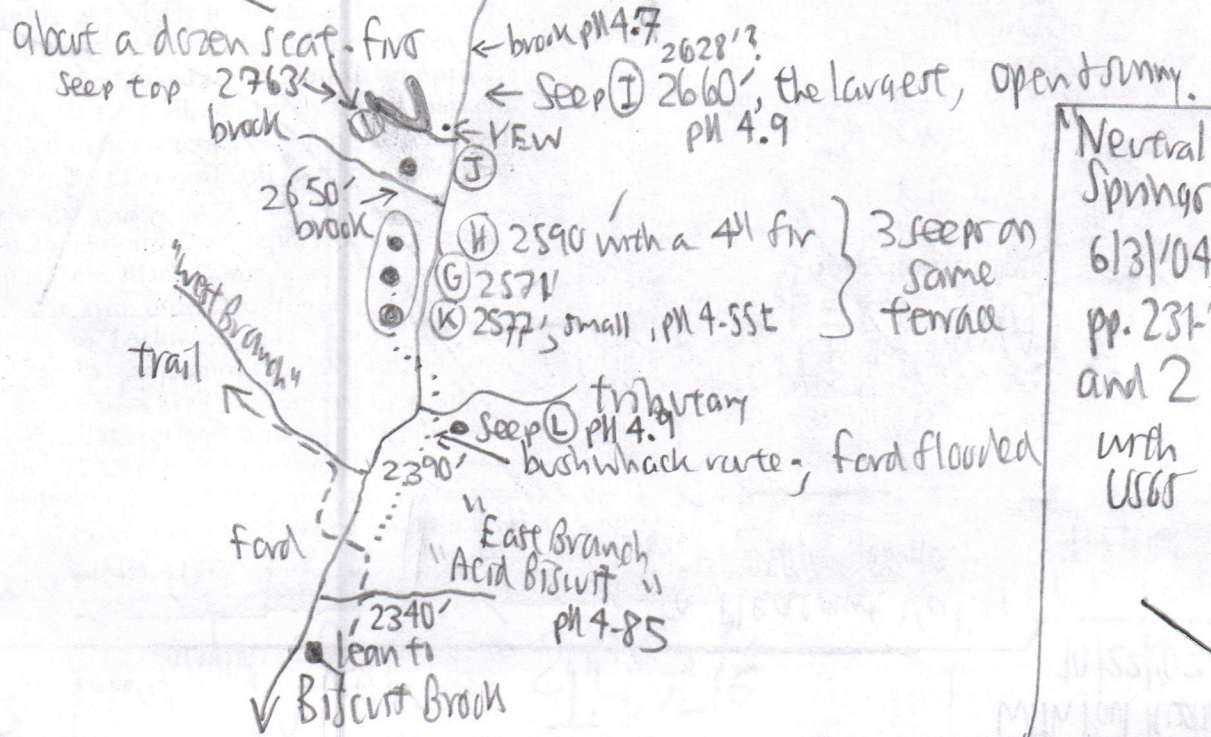 about a dozen scat. firs
← brook pH 4.7
2628'?
seep top 2763'
← Seep I 2660', the largest, open & sunny.
pH 4.9
brook
YEW
J
2650'
brook
H 2590' with a 4" fir
G 2571'
K 2577', small, pH 4.55±
3 seeps on
same
terrace
"West Branch"
trail
tributary
Seep L pH 4.9
bushwhack route; ford flooded
2390'
ford
"East Branch
"Acid Biscuit"
pH 4.85
2340'
lean to
Biscuit Brook
"Neutral
Springs
6/3/04
pp. 231-
and 2
with
USGS